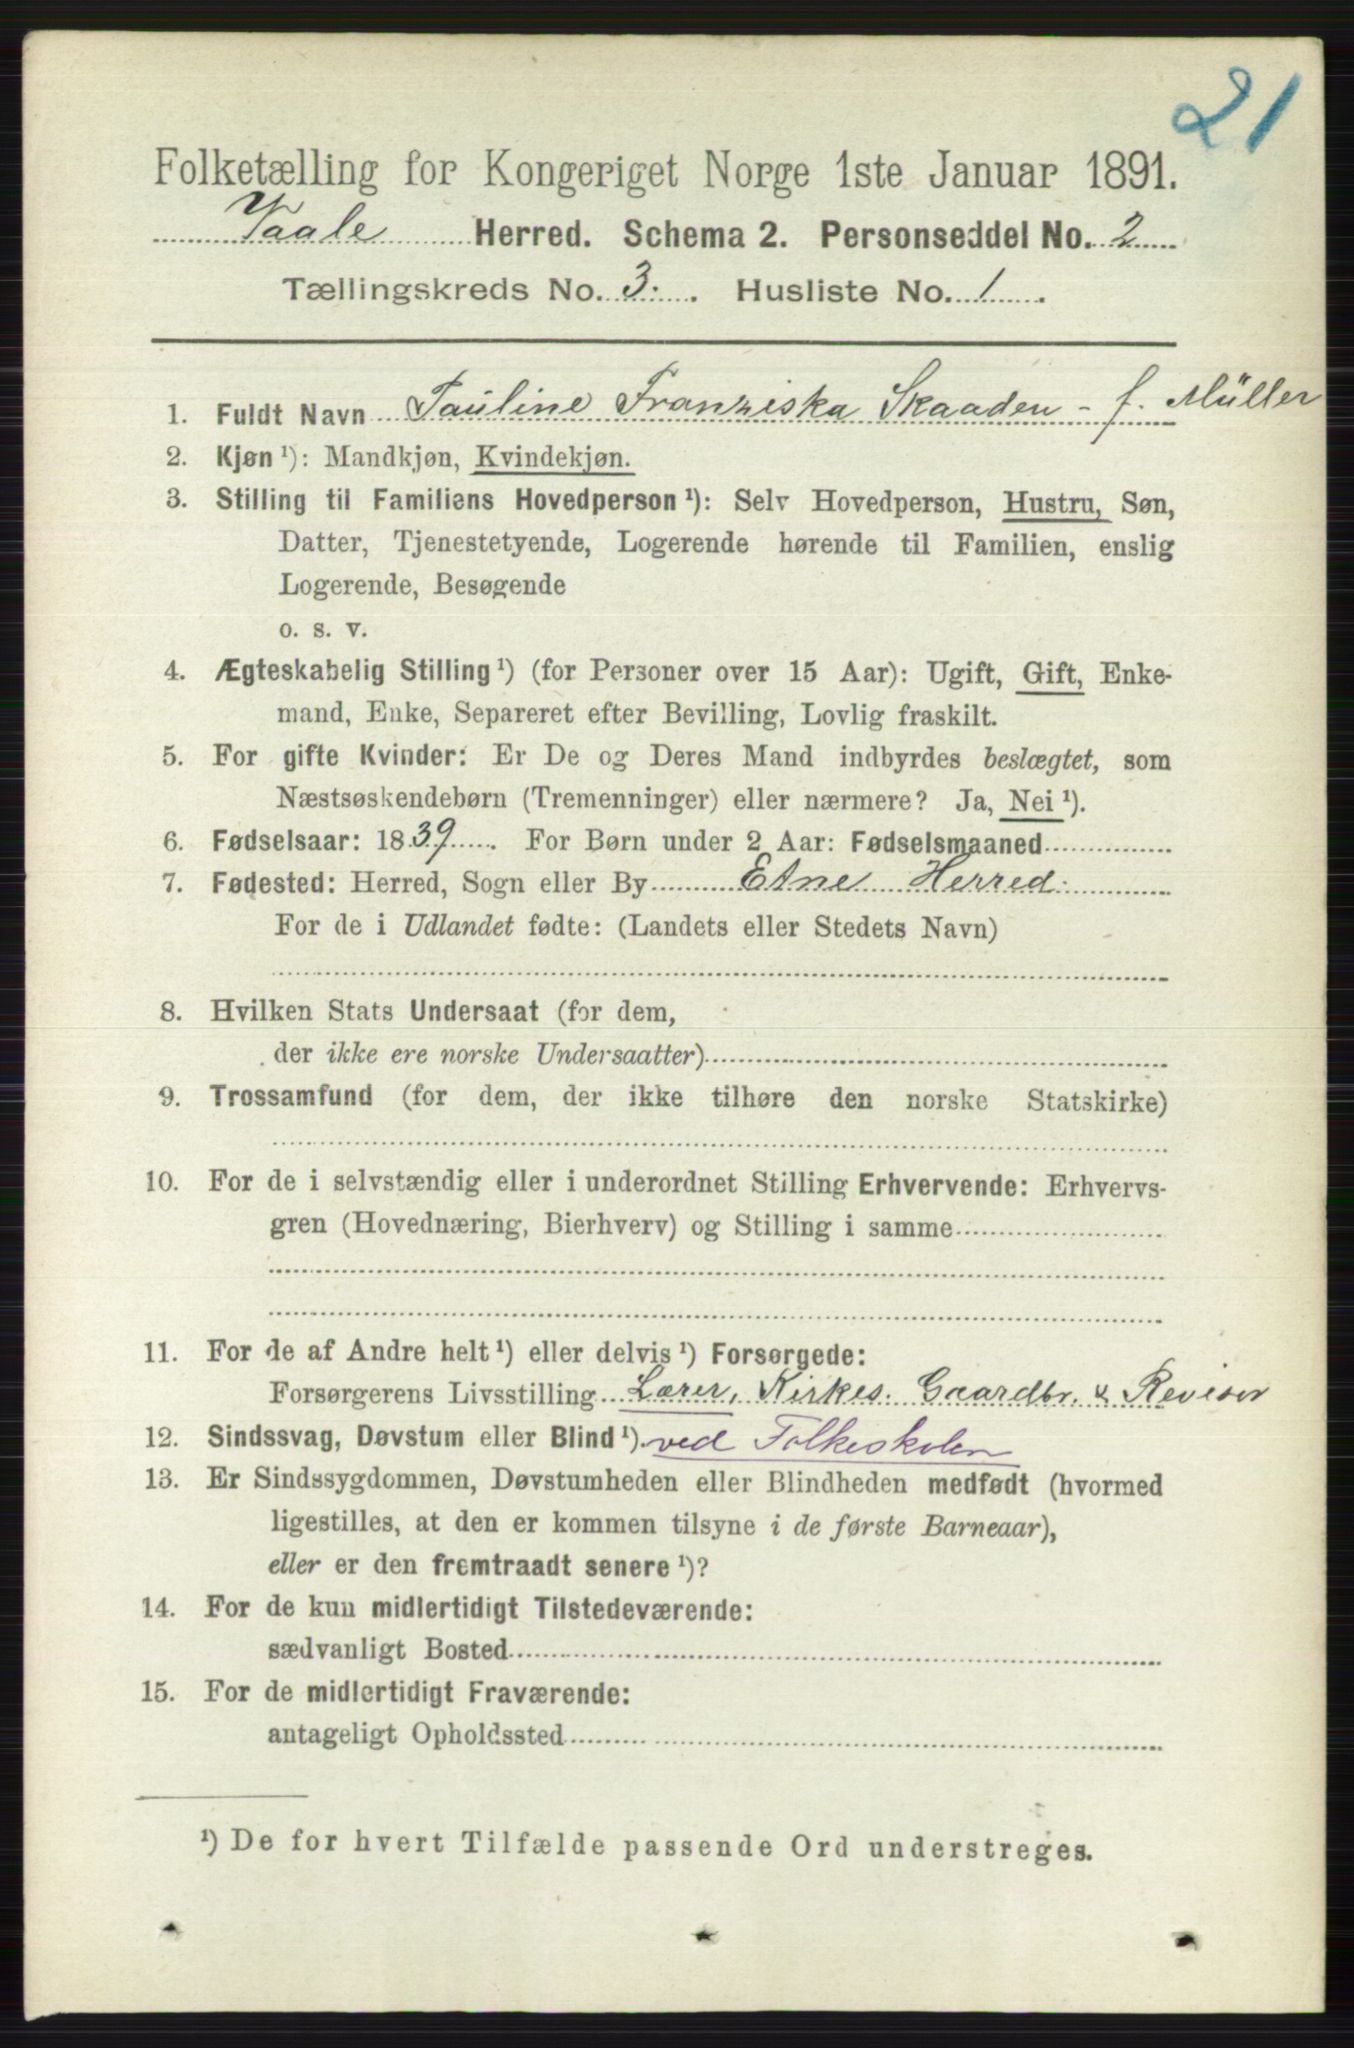 21
Folketælling for Kongeriget Norge 1ste Januar 1891.
Vaale Herred. Schema 2. Personseddel No. 2
Tællingskreds No. 3. Husliste No. 1
1. Fuldt Navn Pauline Franziska Skaaden - f. Müller
2. Kjøn ¹): Mandkjøn, Kvindekjøn.
3. Stilling til Familiens Hovedperson ¹): Selv Hovedperson, Hustru, Søn,
Datter, Tjenestetyende, Logerende hørende til Familien, enslig
Logerende, Besøgende
o. s. v.
4. Ægteskabelig Stilling ¹) (for Personer over 15 Aar): Ugift, Gift, Enke-
mand, Enke, Separeret efter Bevilling, Lovlig fraskilt.
5. For gifte Kvinder: Er De og Deres Mand indbyrdes beslægtet, som
Næstsøskendebørn (Tremenninger) eller nærmere? Ja, Nei ¹).
6. Fødselsaar: 1839. For Børn under 2 Aar: Fødselsmaaned
7. Fødested: Herred, Sogn eller By Etne Herred.
For de i Udlandet fødte: (Landets eller Stedets Navn)
8. Hvilken Stats Undersaat (for dem,
der ikke ere norske Undersaatter)
9. Trossamfund (for dem, der ikke tilhøre den norske Statskirke)
10. For de i selvstændig eller i underordnet Stilling Erhvervende: Erhvervs-
gren (Hovednæring, Bierhverv) og Stilling i samme
11. For de af Andre helt ¹) eller delvis ¹) Forsørgede:
Forsørgerens Livsstilling Lærer, Kirkes. Gaardbr. & Revisor
12. Sindssvag, Døvstum eller Blind ¹). ved Folkeskolen
13. Er Sindssygdommen, Døvstumheden eller Blindheden medfødt (hvormed
ligestilles, at den er kommen tilsyne i de første Barneaar),
eller er den fremtraadt senere ¹)?
14. For de kun midlertidigt Tilstedeværende:
sædvanligt Bosted
15. For de midlertidigt Fraværende:
antageligt Opholdssted
¹) De for hvert Tilfælde passende Ord understreges.